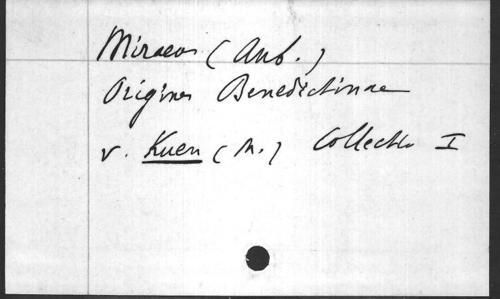 Miraeus (Aub.)
Origines Benedictinae
v. Kuen (M.) Collectio I